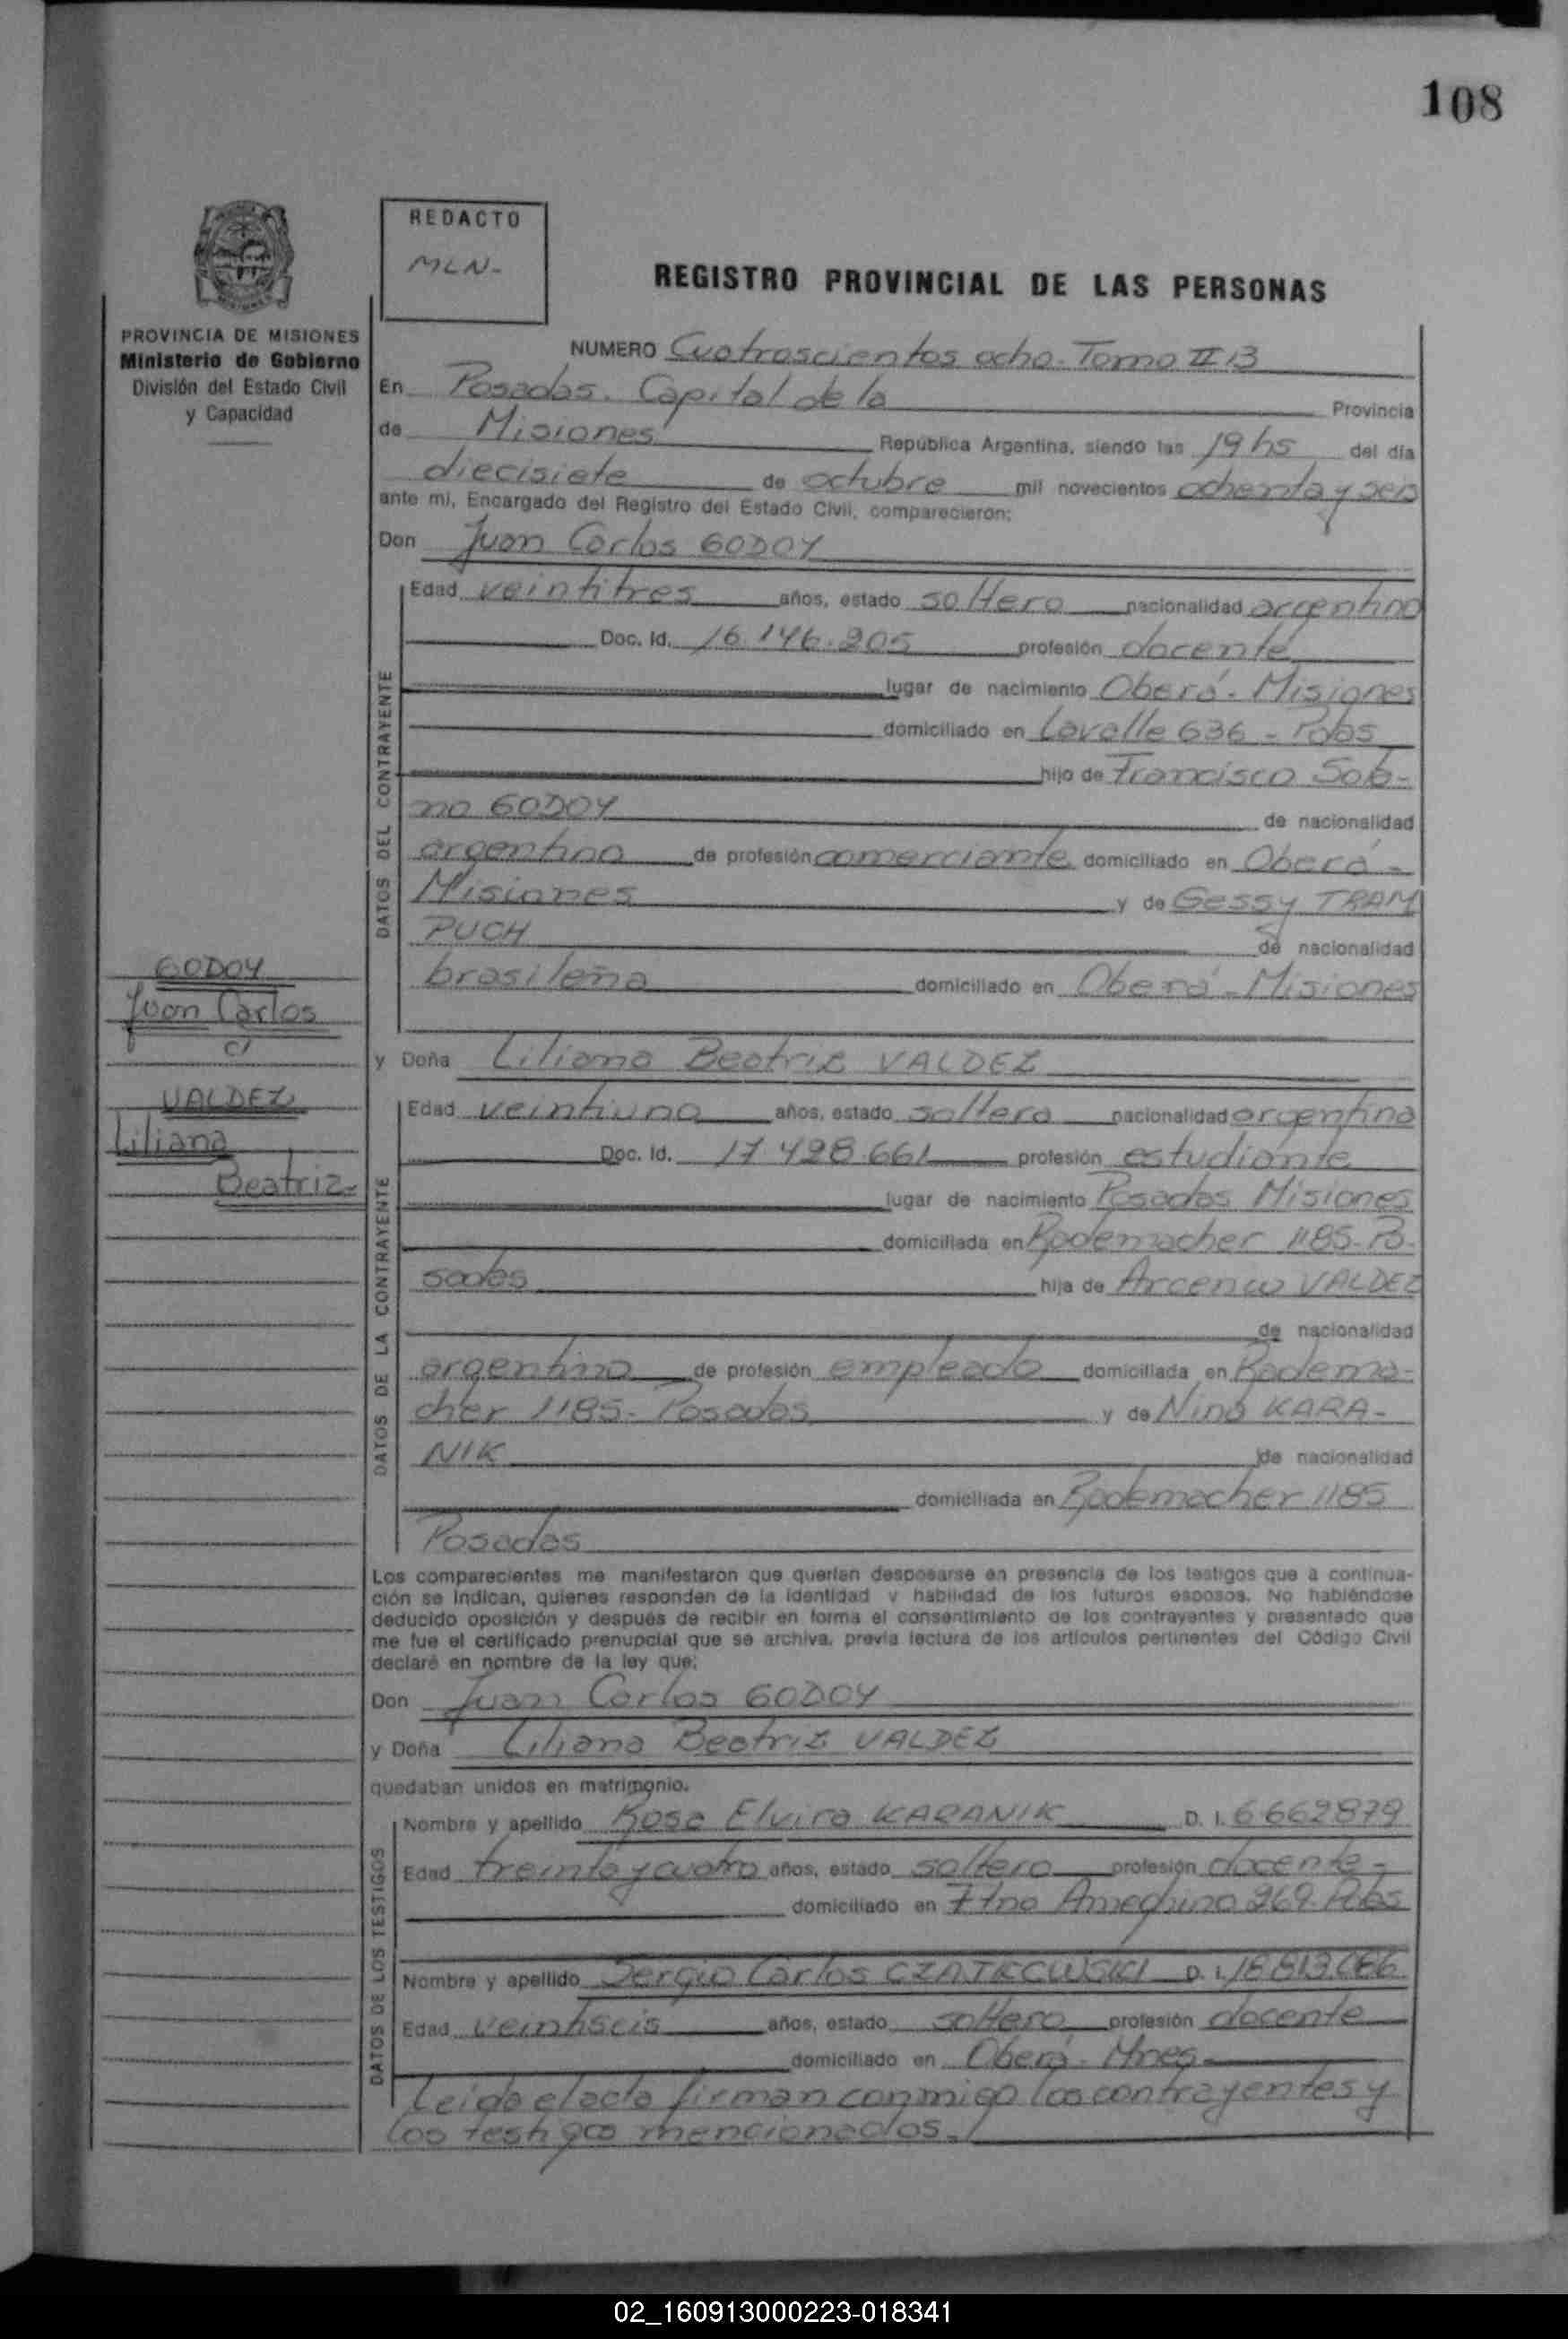 108
REDACTO
MLN-
REGISTRO PROVINCIAL DE LAS PERSONAS
PROVINCIA DE MISIONES
Ministerio de Gobierno
División del Estado Civil
y Capacidad
NUMERO Cuatroscientos ocho. Tomo II B
En Posadas. Capital de la Provincia
de Misiones República Argentina, siendo las 19 hs del día
diecisiete de octubre mil novecientos ochenta y seis
ante mí, Encargado del Registro del Estado Civil, comparecieron:
Don Juan Carlos GODOY
DATOS DEL CONTRAYENTE
Edad veintitres años, estado soltero nacionalidad argentino
Doc. Id. 16.146.205 profesión docente
lugar de nacimiento Oberá - Misiones
domiciliado en Lavalle 636 - Pdas
hijo de Francisco
no GODOY de nacionalidad
argentino de profesión comerciante domiciliado en Oberá -
Misiones y de Gessy TRAM
PUCH de nacionalidad
brasileña domiciliado en Oberá - Misiones
GODOY
Juan Carlos
c/
VALDEZ
Liliana
Beatriz-
y Doña Liliana Beatriz VALDEZ
DATOS DE LA CONTRAYENTE
Edad veintiuno años, estado soltera nacionalidad argentina
Doc. Id. 17.428.661 profesión estudiante
lugar de nacimiento Posadas Misiones
domiciliada en Rademacher 1185 - Po-
sadas hija de Arcenio VALDEZ
de nacionalidad
argentino de profesión empleado domiciliada en Radema-
cher 1185 - Posadas y de Nina KARA-
NIK de nacionalidad
domiciliada en Rademacher 1185
Posadas
Los comparecientes me manifestaron que querían desposarse en presencia de los testigos que a continua-
ción se indican, quienes responden de la identidad y habilidad de los futuros esposos. No habiéndose
deducido oposición y después de recibir en forma el consentimiento de los contrayentes y presentado que
me fue el certificado prenupcial que se archiva, previa lectura de los artículos pertinentes del Código Civil
declaré en nombre de la ley que:
Don Juan Carlos GODOY
y Doña Liliana Beatriz VALDEZ
quedaban unidos en matrimonio.
DATOS DE LOS TESTIGOS
Nombre y apellido Rosa Elvira KARANIK D. I. 6662879
Edad treinta y cuatro años, estado soltera profesión docente -
domiciliado en Ftno Ameghino 269 - Pdas
Nombre y apellido Sergio Carlos D. I. 18.813.086
Edad veintiseis años, estado soltero profesión docente
domiciliado en Oberá - Mnes
Leída el acta firman conmigo los contrayentes y
los testigos mencionados.
02_160913000223-018341